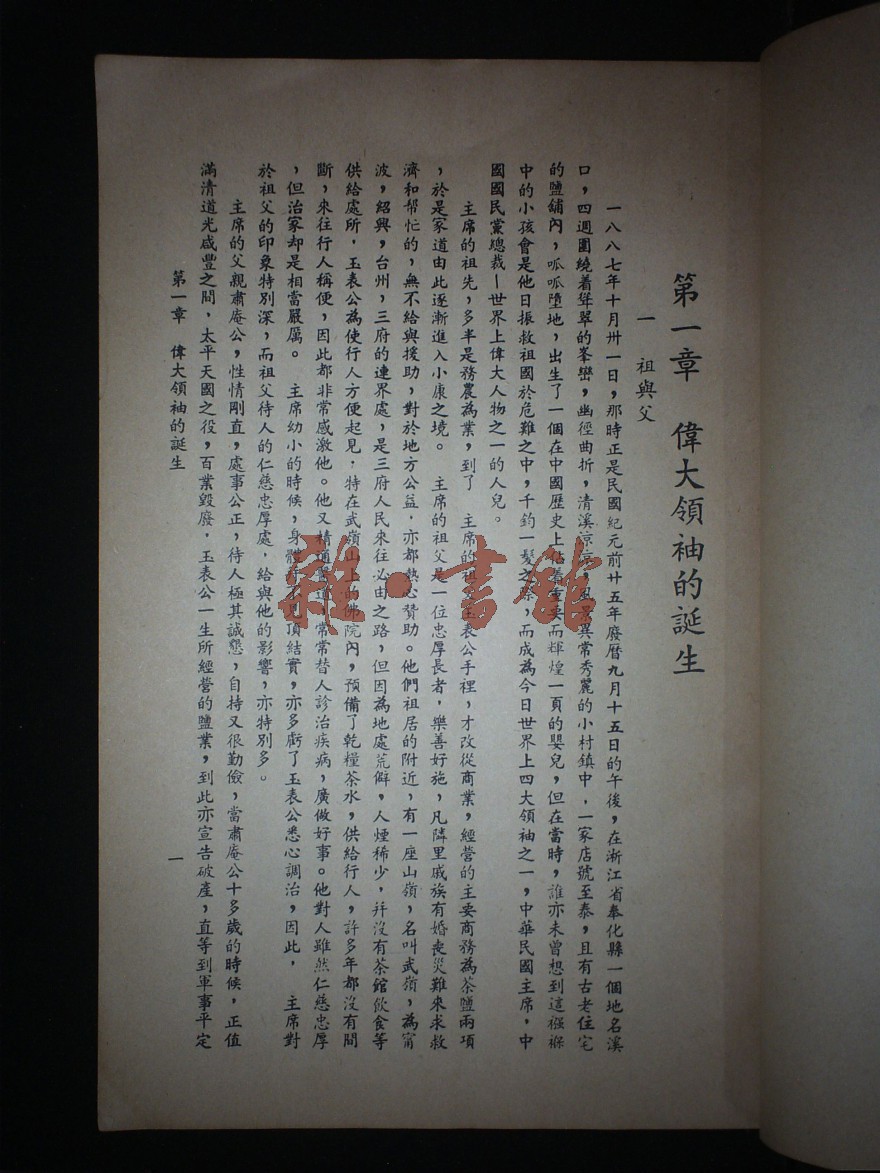 第一章　偉大領袖的誕生
一　祖與父
一八八七年十月卅一日，那時正是民國紀元前廿五年廢曆九月十五日的午後，在浙江省奉化縣一個地名溪
口，四週圍繞着聳翠的峯巒，幽徑曲折，清溪涼涼，風景異常秀麗的小村鎮中，一家店號至泰，且有古老住宅
的鹽舖內，呱呱墮地，出生了一個在中國歷史上佔着重要而輝煌一頁的嬰兒，但在當時，誰亦未曾想到這襁褓
中的小孩會是他日振救祖國於危難之中，千鈞一髮之際，而成為今日世界上四大領袖之一，中華民國主席，中
國國民黨總裁－世界上偉大人物之一的人兒。
主席的祖先，多半是務農為業，到了　主席的祖父玉表公手裡，才改從商業，經營的主要商務為茶鹽兩項
，於是家道由此逐漸進入小康之境。　主席的祖父是一位忠厚長者，樂善好施，凡隣里戚族有婚喪災難來求救
濟和幫忙的，無不給與援助，對於地方公益，亦都熱心贊助。他們祖居的附近，有一座山嶺，名叫武嶺，為甯
波，紹興，台州，三府的連界處，是三府人民來往必由之路，但因為地處荒僻，人煙稀少，并沒有茶館飲食等
供給處所，玉表公為使行人方便起見，特在武嶺山上的佛院內，預備了乾糧茶水，供給行人，許多年都沒有間
斷，來往行人稱便，因此都非常感激他。他又精通醫道，常常替人診治疾病，廣做好事。他對人雖然仁慈忠厚
，但治家却是相當嚴厲。　主席幼小的時候，身體不見頂結實，亦多虧了玉表公悉心調治，因此，　主席對
於祖父的印象特別深，而祖父待人的仁慈忠厚處，給與他的影響，亦特別多。
主席的父親肅庵公，性情剛直，處事公正，待人極其誠懇，自持又很勤儉，當肅庵公十多歲的時候，正值
滿清道光咸豐之間，太平天國之役，百業毀廢，玉表公一生所經營的鹽業，到此亦宣告破產，直等到軍事平定
第一章　偉大領袖的誕生
一
雜·書館